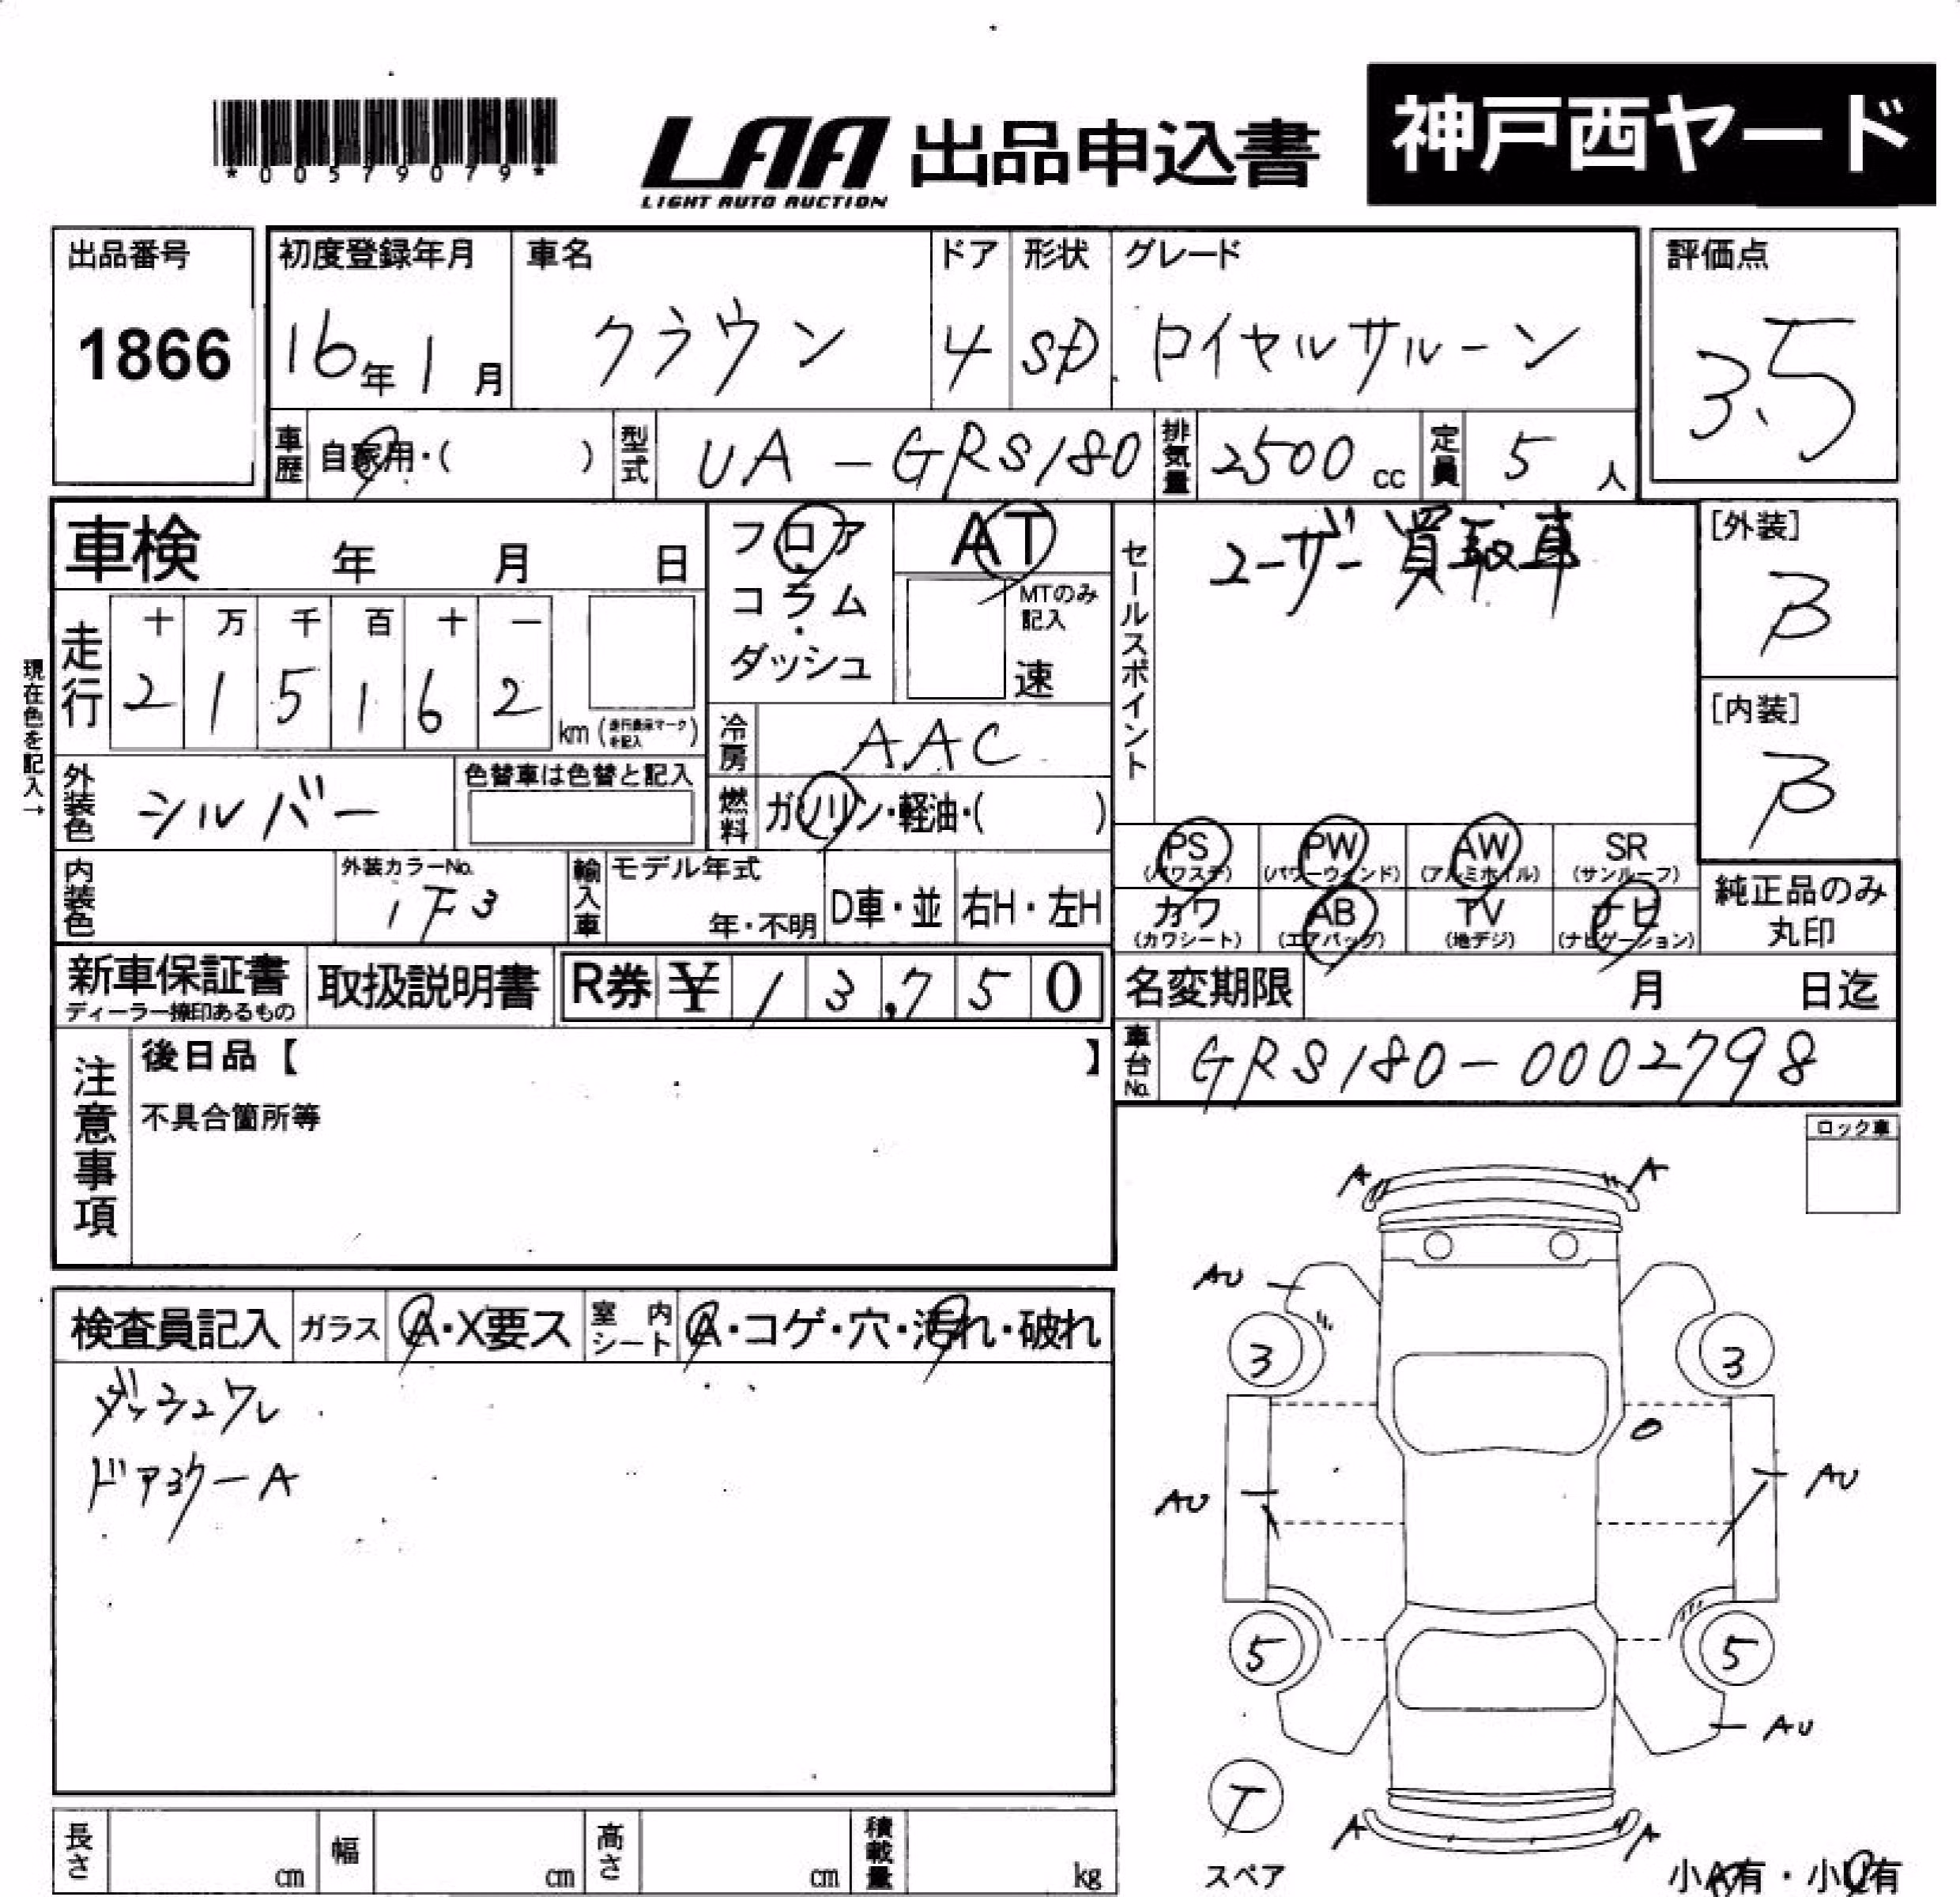 *00579079*
LAA 出品申込書
LIGHT AUTO AUCTION
神戸西ヤード
出品番号
1866
初度登録年月
16年 1月
車名
クラウン
ドア
4
形状
SD
グレード
ロイヤルサルーン
評価点
3.5
車歴 自家用・( )
型式 UA-GRS180
排気量 2500cc
定員 5人
車検 年 月 日
フロア・コラム・ダッシュ
AT
MTのみ記入
速
セールスポイント
ユーザー買取車
[外装]
B
[内装]
B
現在色を記入→
走行
十 万 千 百 十 一
2 1 5 1 6 2
km (走行表示マークを記入)
冷房 AAC
燃料 ガソリン・軽油・( )
外装色 シルバー
色替車は色替と記入
内装色
外装カラーNo.
1F3
輸入車
モデル年式
年・不明
D車・並
右H・左H
PS (パワステ)
PW (パワーウィンド)
AW (アルミホイル)
SR (サンルーフ)
カワ (カワシート)
AB (エアバッグ)
TV (地デジ)
ナビ (ナビゲーション)
純正品のみ丸印
新車保証書
ディーラー捺印あるもの
取扱説明書
R券 ¥ 13,750
名変期限 月 日迄
車台No. GRS180-0002798
注意事項
後日品【 】
不具合箇所等
ロック車
検査員記入
ガラス A・X要ス
室内シート A・コゲ・穴・汚れ・破れ
ダッシュワレ
ドアヨクーA
A A
AU
3 3
AU AU
5 5
AU
T
スペア
A A
小A有・小U有
長さ cm
幅 cm
高さ cm
積載量 kg